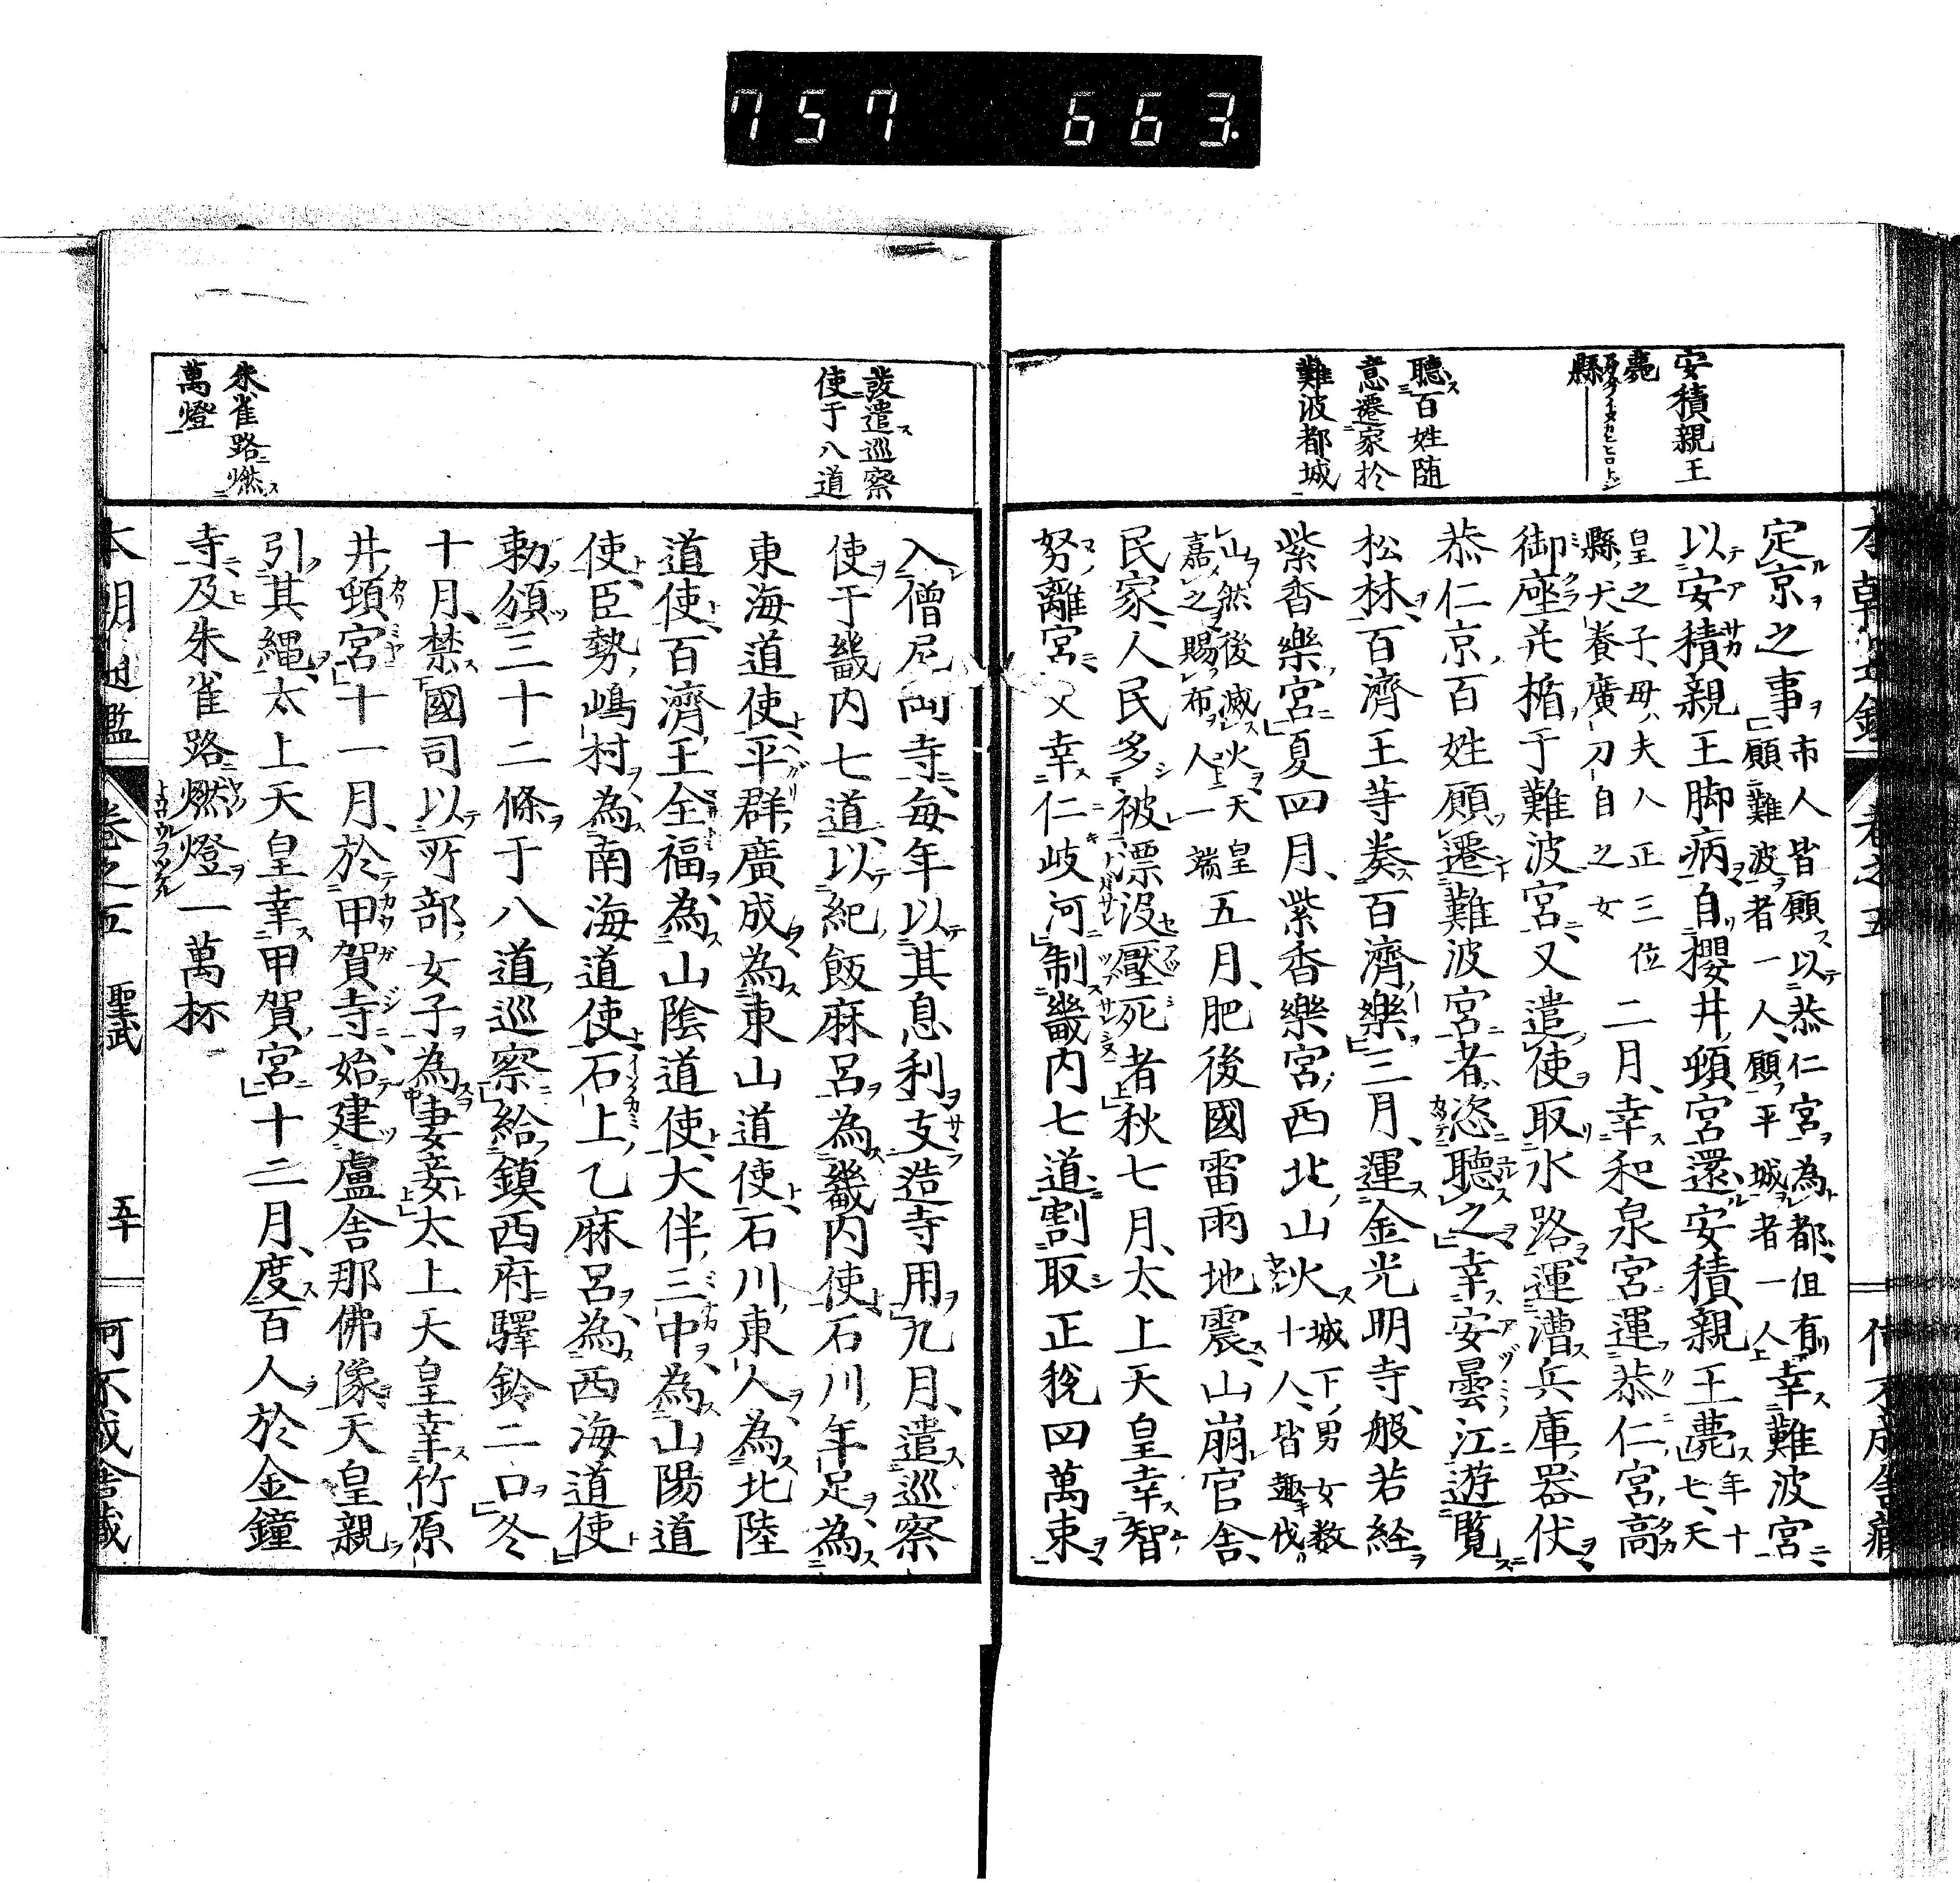 757 663.
安積親王
薨
縣
聽百姓随
意遷家於
難波都城
定京之事市人皆願以恭仁宮為都、但有
願難波者一人、願平城者一人
幸難波宮
以安積親王脚病自櫻井頓宮還安積親王薨年十七、天
皇之子、母夫人正三位
縣犬養廣刀自之女
二月、幸和泉宮運恭仁宮高
御座并楯于難波宮又遣使取水路運漕兵庫器伏
恭仁京百姓願遷難波宮者恣聽之幸安曇江遊覽
松林百濟王等奏百濟樂三月、運金光明寺般若経
紫香樂宮夏四月、紫香樂宮西北山火城下男女数
十人、皆趣伐
山然後滅火天皇
嘉之賜布人一端
五月、肥後國雷雨地震山崩官舎、
民家、人民多被漂没壓死者秋七月、太上天皇幸智
努離宮又幸仁岐河制畿内七道割取正税四萬束
發遣巡察
使于八道
朱雀路燃
萬燈
入僧尼両寺毎年以其息利支造寺用九月、遣巡察
使于畿内七道以紀飯麻呂為畿内使石川年足為
東海道使平群廣成為東山道使石川東人為北陸
道使百濟王全福為山陰道使大伴三中為山陽道
使臣勢嶋村為南海道使石上乙麻呂為西海道使
勅頒三十二條于八道巡察給鎮西府驛鈴二口冬
十月禁國司以所部女子為妻妾太上天皇幸竹原
井頓宮十一月、於甲賀寺始建盧舎那佛像天皇親
引其縄太上天皇幸甲賀宮十二月、度百人於金鐘
寺及朱雀路燃燈一萬杯
卷之五 聖武 五十